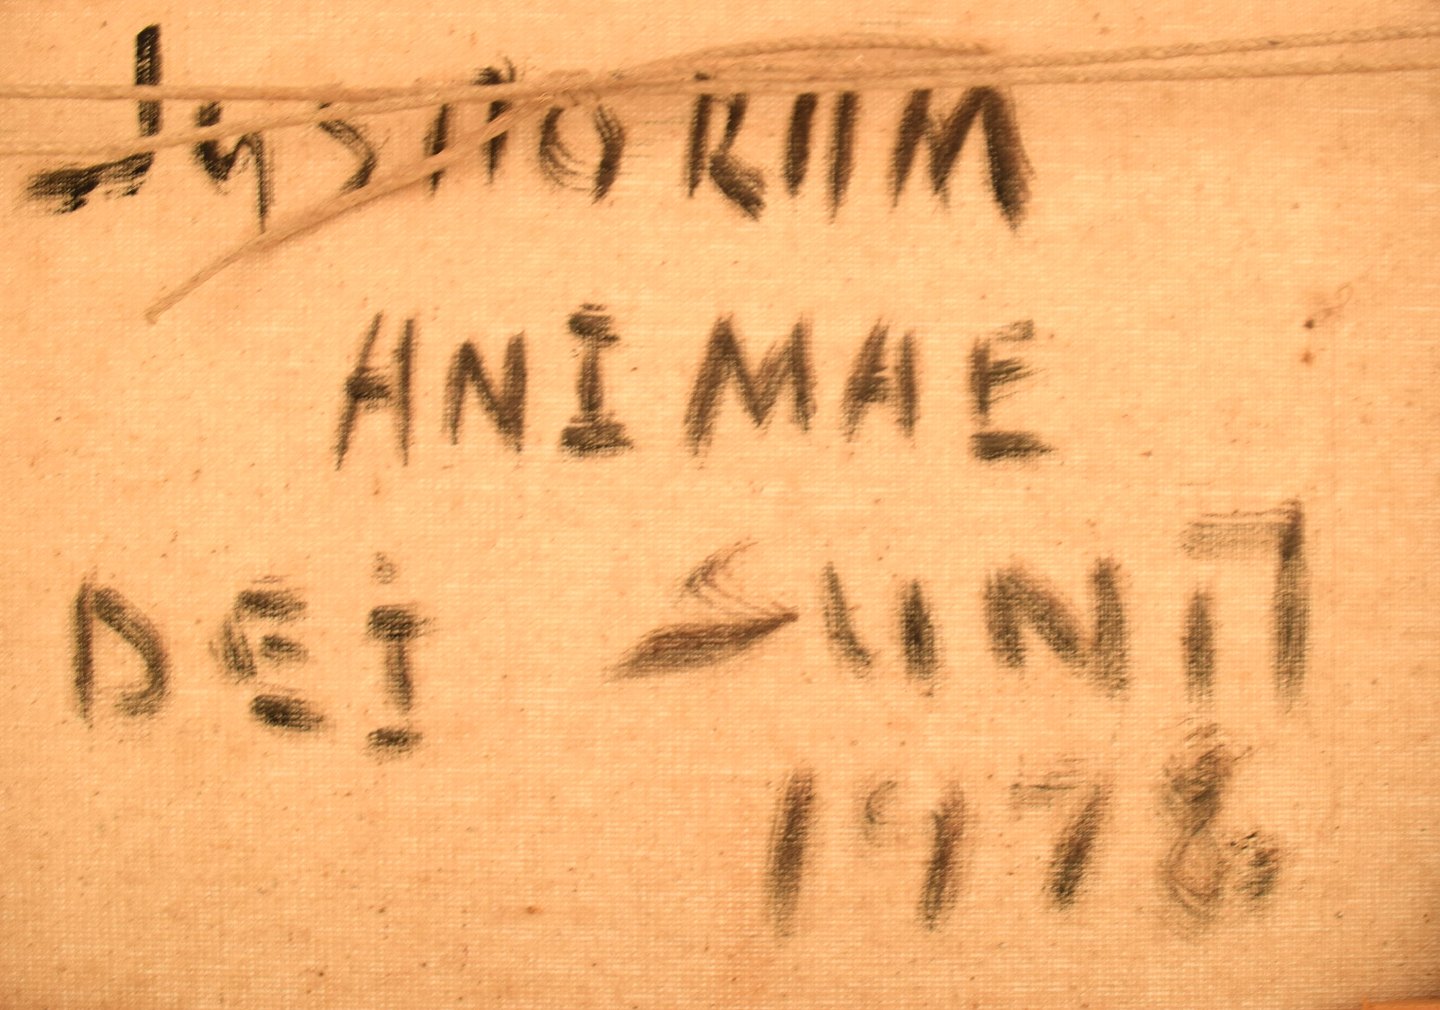 JUSTORUM
ANIMAE
DEI SUNT
1978